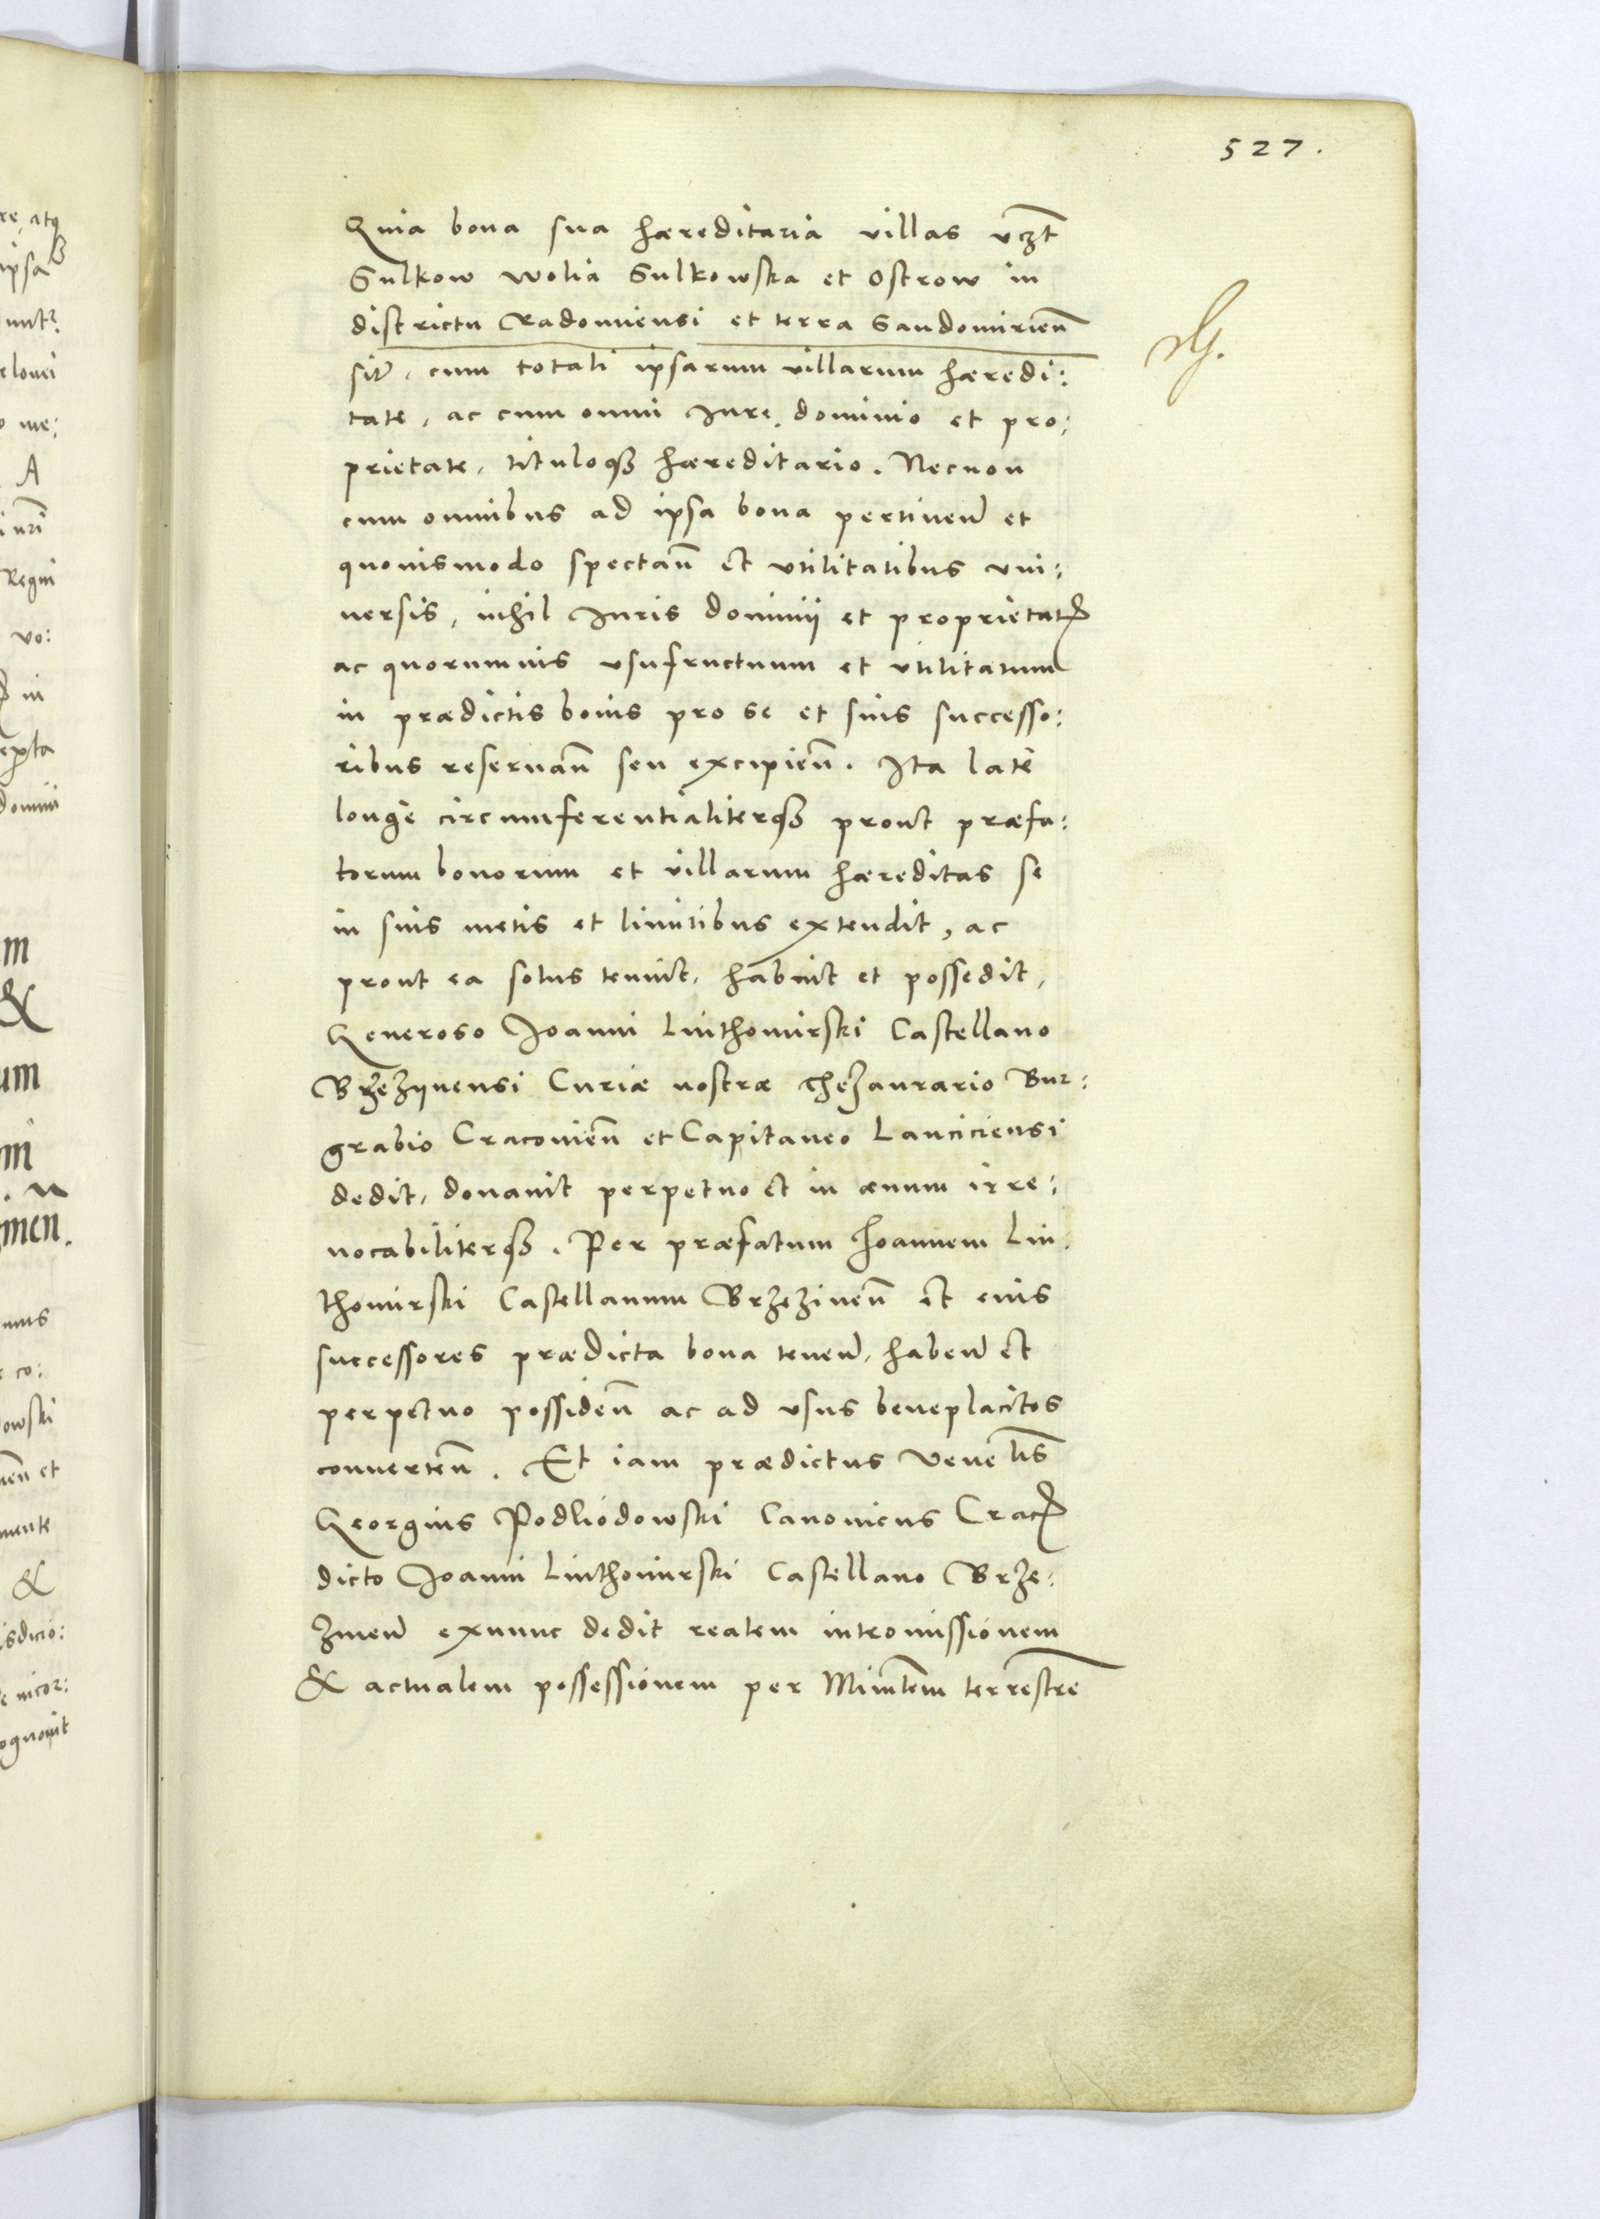 527.
Quia bona sua hæreditaria villas vczt
Sulkow wolia Sulkowska et Ostrow in
districtu Radomiensi et terra Sandomirien̄
sit̄, cum totali ipsarum villarum hæredi:
tate, ac cum omni Iure, dominio et pro:
prietate, tituloqȝ hæreditario. Necnon
cum omnibus ad ipsa bona pertinen̄ et
quouismodo spectan̄ et vtilitatibus vni:
uersis, nihil Iuris dominij et proprietatꝭ
ac quorumuis vsufructuum et vtilitatum
in prædictis bonis pro se et suis successo:
ribus reseruan̄ seu excipien̄. Ita late
longe circumferentialiterqȝ prout præfa:
torum bonorum et villarum hæreditas se
in suis metis et limitibus extendit, ac
prout ea solus tenuit, habuit et possedit,
Generoso Joanni Linthomirski Castellano
Brzezijnensi Curiæ nostræ theȝaurario Bur:
grabio Cracouien̄ et Capitaneo Lanciciensi
dedit, donauit perpetuo et in æuum irre:
uocabiliterqȝ. Per præfatum Joannem Lin:
thomirski Castellanum Brzezinen̄ et eius
successores prædicta bona tenen̄, haben̄ et
perpetuo possiden̄ ac ad vsus beneplacitos
conuerten̄. Et iam prædictus Venelis̄
Georgius Podliodowski Canonicus Cracꝭ
dicto Joanni Linthomirski Castellano Brze:
zinen̄ exnunc dedit realem intromissionem
& actualem possessionem per Minrēm terrestrē